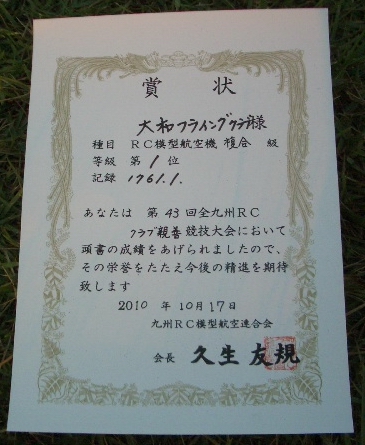 賞状
大和フライングクラブ様
種目 RC模型航空機 複合 級
等級 第1位
記録 1761.1.
あなたは 第43回全九州RC
クラブ親善競技大会において
頭書の成績をあげられましたので、
その栄誉をたたえ今後の精進を期待
致します
2010 年 10月17日
九州RC模型航空連合会
会長 久生 友規